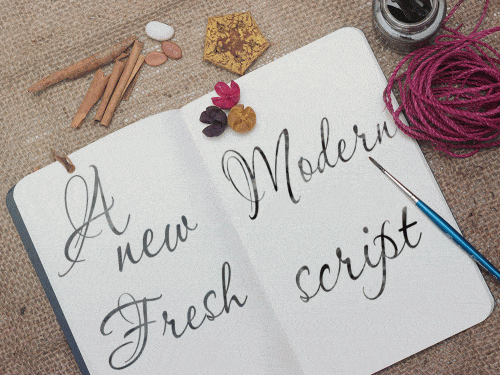 A
new
Fresh
Modern
script